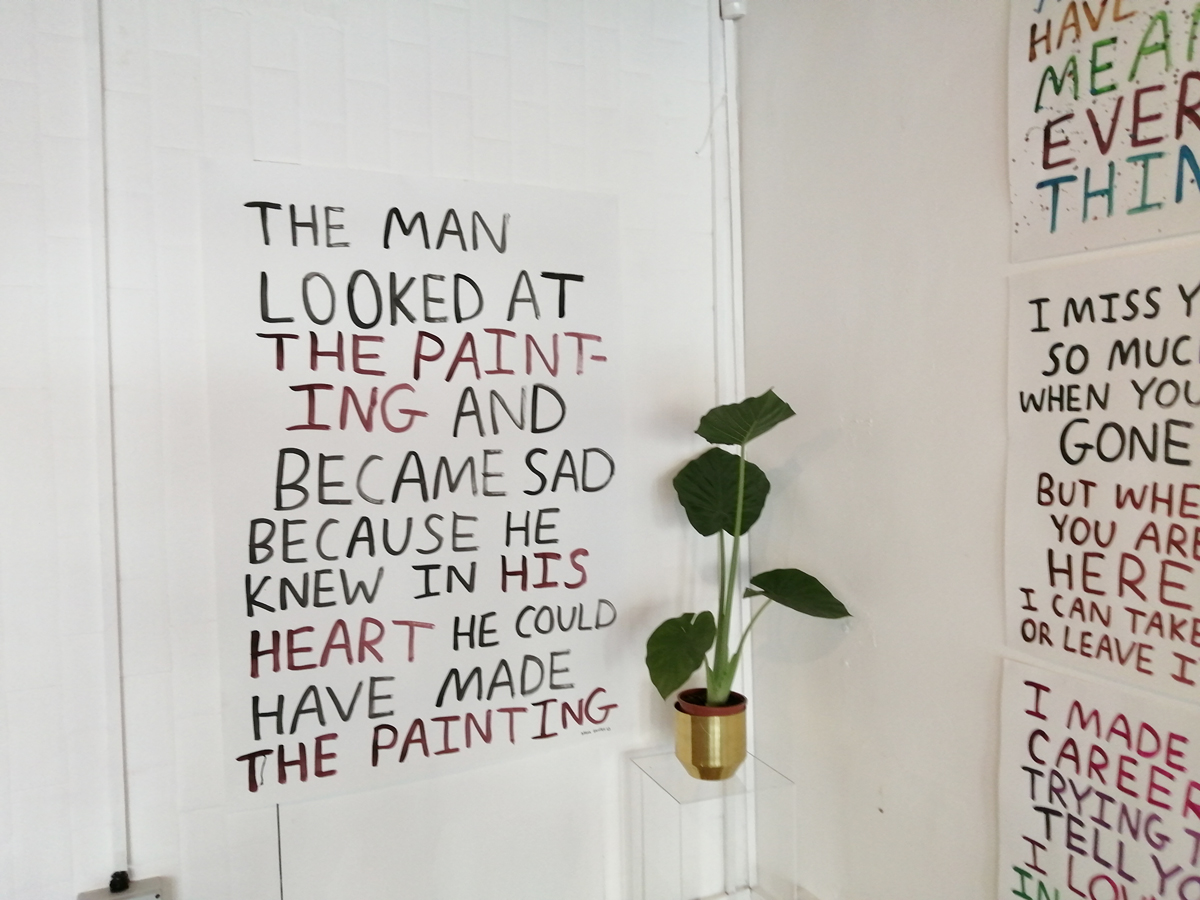 THE MAN
LOOKED AT
THE PAINT-
ING AND
BECAME SAD
BECAUSE HE
KNEW IN HIS
HEART HE COULD
HAVE MADE
THE PAINTING
HAVE
EVER
I MISS
SO
WHEN YOU
GONE
BUT
YOU ARE
HERE
I CAN TAKE
OR LEAVE
I MADE
CAREER
TRYING
TELL
I
IN